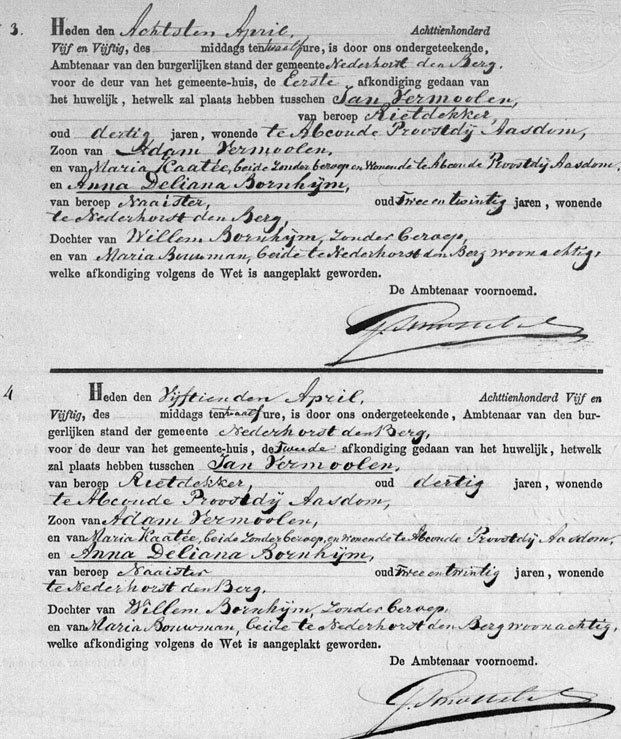 3. Heden den Achtsten April, Achttienhonderd
Vijf en Vijftig, des middags ten twaalf ure, is door ons ondergeteekende,
Ambtenaar van den burgerlijken stand der gemeente Nederhorst den Berg.
voor de deur van het gemeente-huis, de Eerste afkondiging gedaan van
het huwelijk, hetwelk zal plaats hebben tusschen Jan Vermoolen,
van beroep Rietdekker,
oud dertig jaren, wonende te Abcoude Proostdij Aasdom,
Zoon van Adam Vermoolen,
en van Maria Kaatée, beide Zonder beroep en Wonende te Abcoude Proostdij Aasdom.
en Anna Deliana Bornhijm,
van beroep Naaister, oud Twee en twintig jaren, wonende
te Nederhorst den Berg,
Dochter van Willem Bornhijm, Zonder beroep,
en van Maria Bouwman, beide te Nederhorst den Berg woonachtig,
welke afkondiging volgens de Wet is aangeplakt geworden.
De Ambtenaar voornoemd.
4 Heden den Vijftienden April, Achttienhonderd Vijf en
Vijftig, des middags ten twaalf ure, is door ons ondergeteekende, Ambtenaar van den bur-
gerlijken stand der gemeente Nederhorst den Berg,
voor de deur van het gemeente-huis, de Tweede afkondiging gedaan van het huwelijk, hetwelk
zal plaats hebben tusschen Jan Vermoolen,
van beroep Rietdekker, oud dertig jaren, wonende
te Abcoude Proostdij Aasdom,
Zoon van Adam Vermoolen,
en van Maria Kaatée, beide Zonder beroep, en Wonende te Abcoude Proostdij Aasdom,
en Anna Deliana Bornhijm,
van beroep Naaister oud Twee en twintig jaren, wonende
te Nederhorst den Berg.
Dochter van Willem Bornhijm, Zonder beroep,
en van Maria Bouwman, beide te Nederhorst den Berg woonachtig,
welke afkondiging volgens de Wet is aangeplakt geworden.
De Ambtenaar voornoemd.